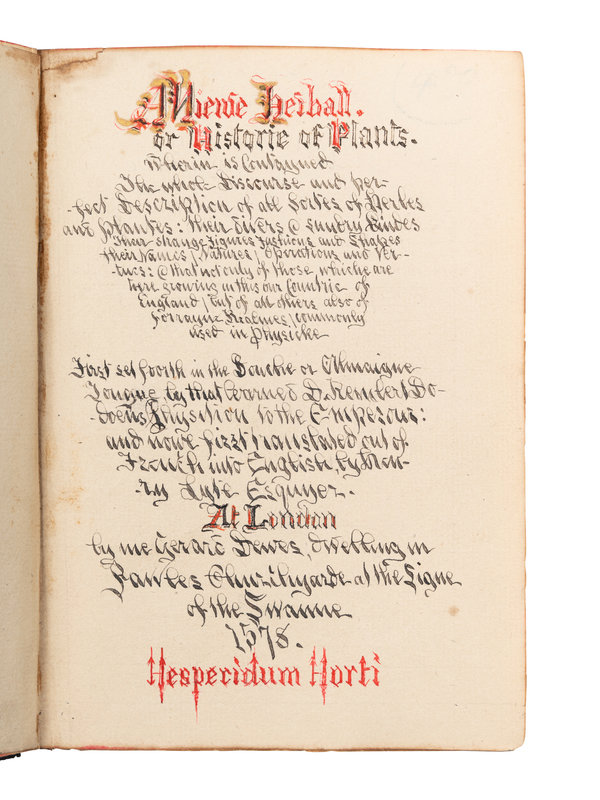 A Niewe Herball.
or Historie of Plants.
Wherin is Contayned
The whole Discourse and per-
-fect Description of all Sortes of Herbes
and Plantes: their divers @ sundry Kindes
their strange Figures Fashions and Shapes
their Names / Natures / Operations and Ver-
tues: @ that not only of those whiche are
here growing in this our Countrie of
England / but of all others also of
forrayne Realmes / commonly
used in Physicke
First set foorth in the Doutche or Almaigne
Tongue, by that learned D. Rembert Do-
-doens Physition to the Emperour:
and nowe first translated out of
French into English, by Hen-
ry Lyte Esquyer.
At London
by me Gerard Dewes, dwelling in
Pawles Churchyarde at the Signe
of the Swanne
1578.
Hesperidum Horti